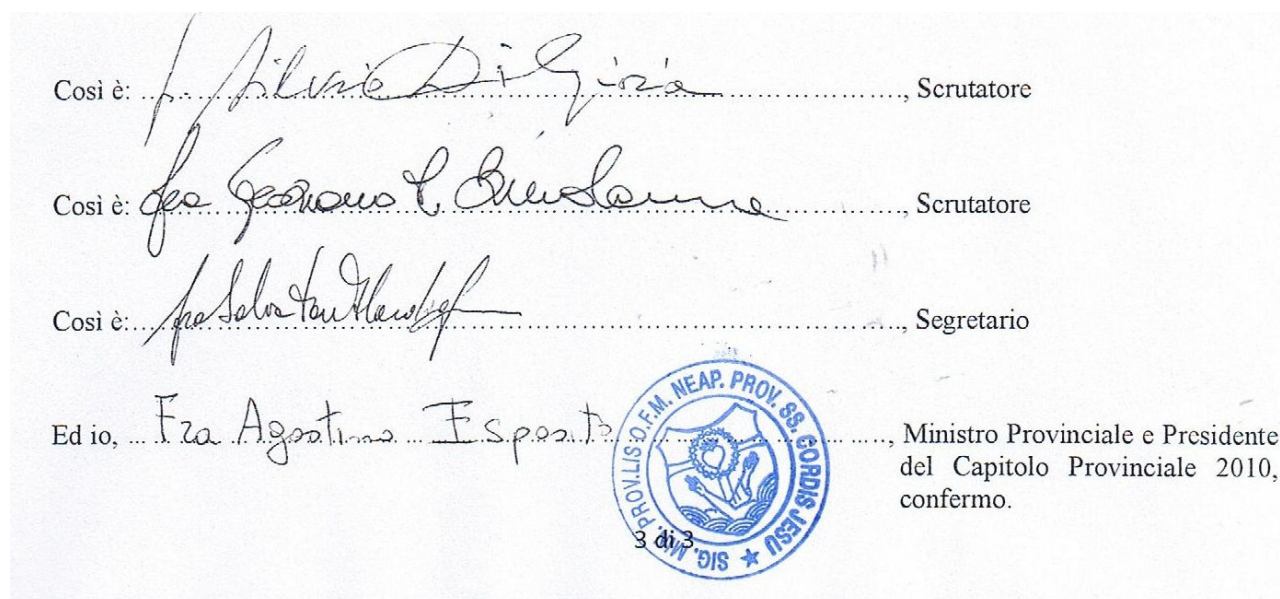 Così è: Silvio Di Giria, Scrutatore
Così è: fra, Scrutatore
Così è: fra Salvatore, Segretario
Ed io, Fra Agostino Esposito, Ministro Provinciale e Presidente
del Capitolo Provinciale 2010,
confermo.
SIG. MIN. PROV.LIS O.F.M. NEAP. PROV. SS. CORDIS JESU
3 di 3